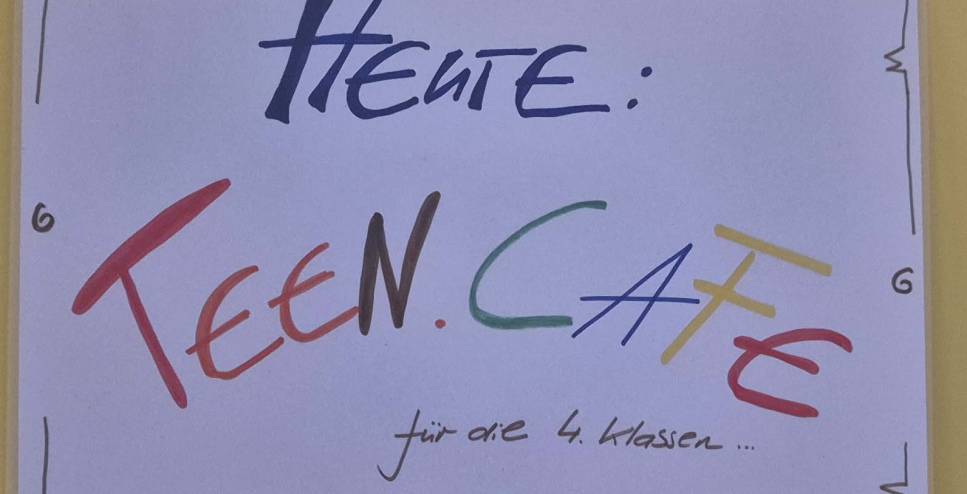 HEUTE:
TEEN.CAFE
für die 4. Klassen...
6
6